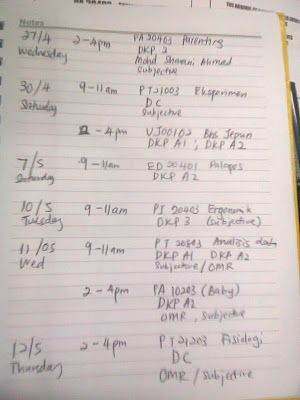 Notes
27/4 2-4pm PA 20403 Parenting
Wednesday DKP 2
Mohd Sharani Ahmad
Subjective
30/4 9-11am PT 21003 Eksperimen
Saturday DC
Subjective
2-4pm VJ00102 Bhs Jepun
DKP A1 ; DKP A2
7/5 9-11am ED 20401 Palapes
Saturday DKP A2
10/5 9-11am PT 20403 Ergonomik
Tuesday DKP 3 (Subjective)
11/05 9-11am PT 20803 Analisis data
Wed DKP A1 DKP A2
Subjective / OMR
2-4pm PA 10203 (Baby)
DKP A2
OMR, Subjective
12/5 2-4pm PT 21203 Fisiologi
Thursday DC
OMR / Subjective